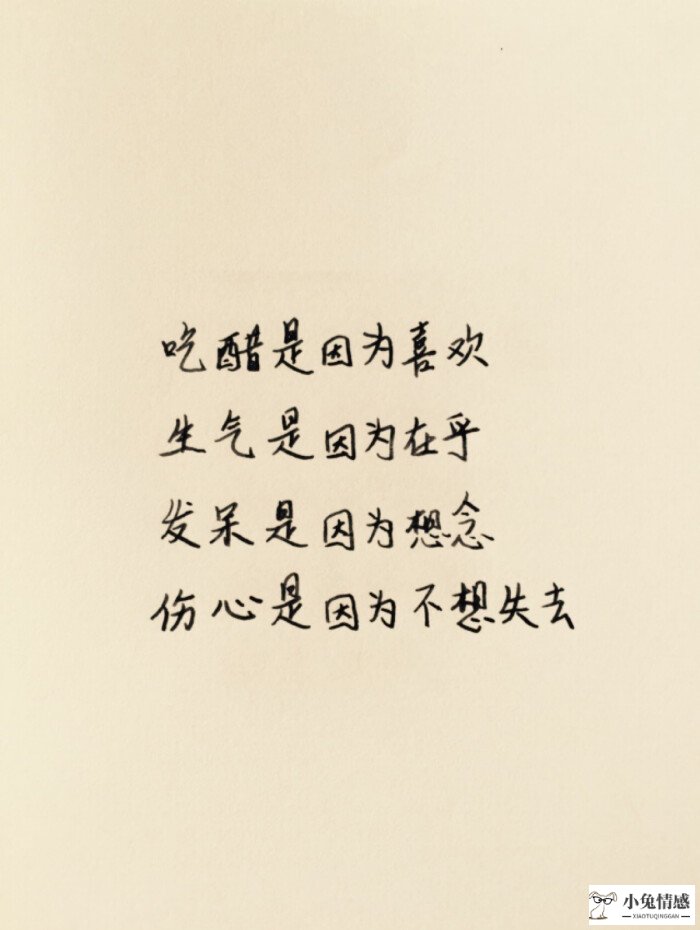 吃醋是因为喜欢
生气是因为在乎
发呆是因为想念
伤心是因为不想失去
小兔情感
XIAOTUQINGGAN